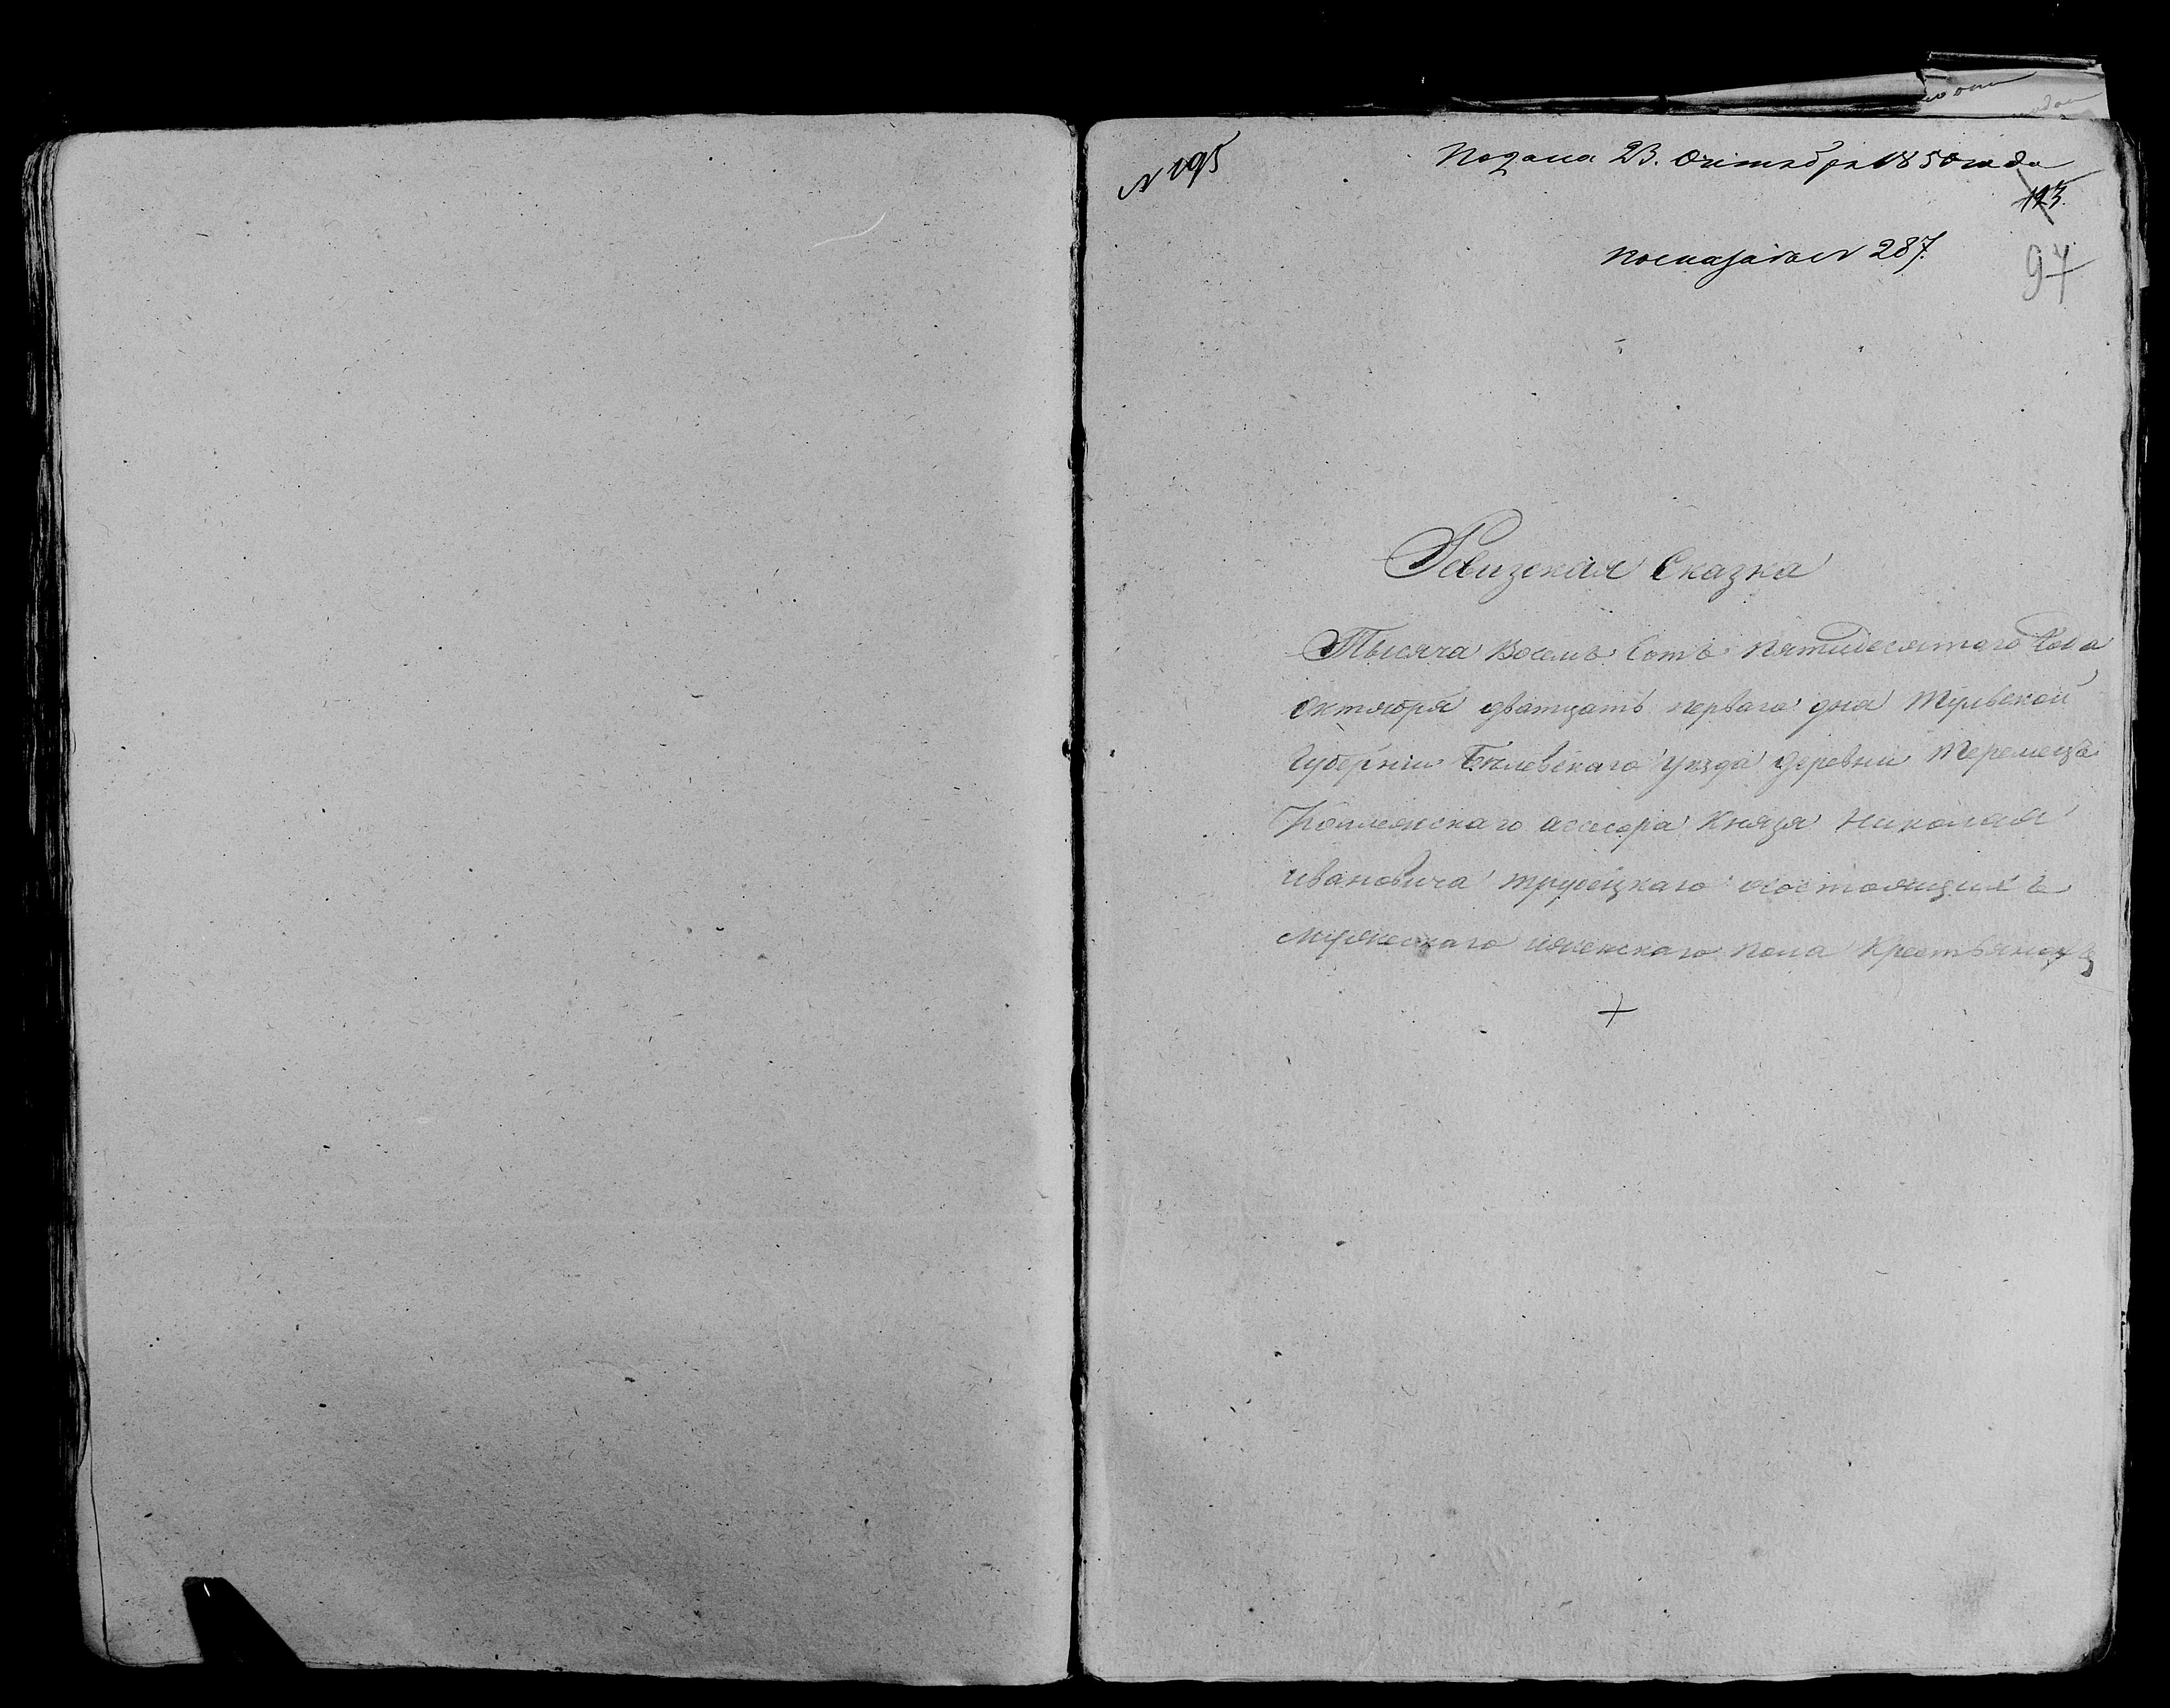 № 195
Подана 23. Октября 1850 года
123.
по сказке № 287.
94
Ревизская Сказка
Тысяча Восемь Сотъ пятидесятого Года
Октября дватцать перваго дня Тульской
Губернии Белевскаго уезда Деревни Теремецъ
Колежскаго асесора Князя Николая
ивановича трубецкаго о состоящихъ
мужескаго иженскаго пола Крестьянахъ